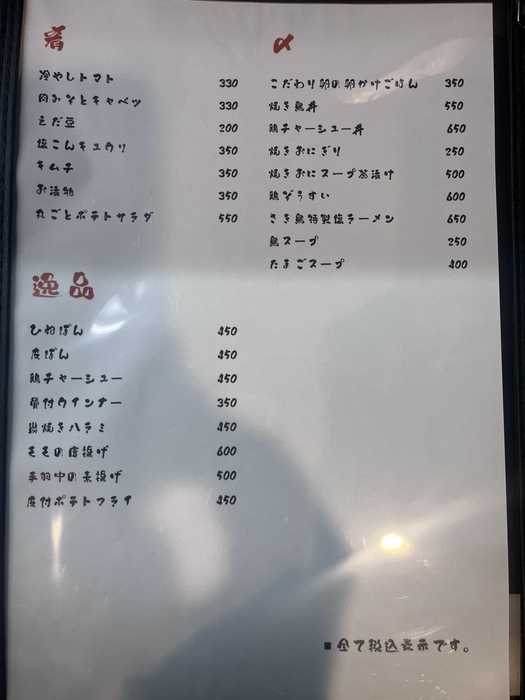 肴
冷やしトマト 330
肉みそとキャベツ 330
えだ豆 200
塩こんキュウリ 350
キムチ 350
お漬物 350
丸ごとポテトサラダ 550
逸品
ひねぽん 450
皮ぽん 450
鶏チャーシュー 450
骨付ウインナー 350
炭焼きハラミ 450
ももの唐揚げ 600
手羽中の素揚げ 500
皮付ポテトフライ 450
〆
こだわり卵の卵かけごはん 350
焼き鳥丼 550
鶏チャーシュー丼 650
焼きおにぎり 250
焼きおにスープ茶漬け 500
鶏ぞうすい 600
さき鳥特製塩ラーメン 650
鳥スープ 250
たまごスープ 400
■全て税込表示です。